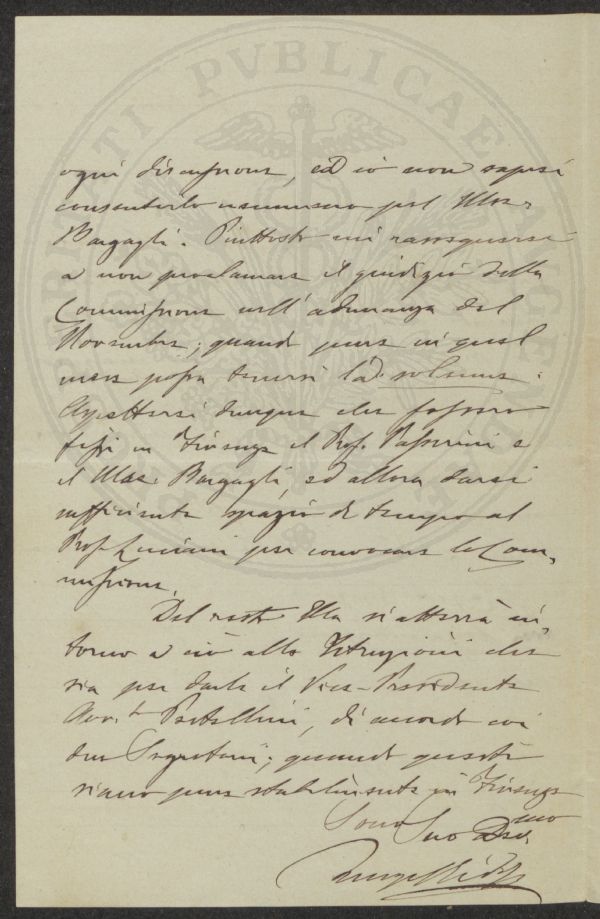 ogni discussione, ed io non saprei
consentirlo nemmeno pel Mar.
Bargagli. Piuttosto mi rassegnerei
a non proclamare il giudizio della
Commissione nell'adunanza del
Novembre; quando pure in quel
mese possa tenersi l'ad. solenne.
Aspetterei dunque che fossero
fissi in Firenze il Prof. Passerini e
il Mar. Bargagli, ed allora darei
sufficiente spazio di tempo al
Prof. Luciani per convocare la Com-
missione.
Del resto Ella si atterrà in-
torno a ciò alle Istruzioni che
sia per darle il Vice-Presidente
Avv.to , di accordo coi
due Segretari; quando questi
siano pure stabilmente in Firenze
Sono
Suo Dev.mo